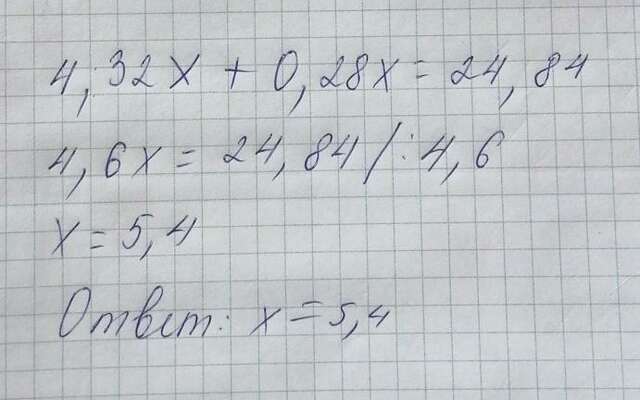 4,32x + 0,28x = 24,84
4,6x = 24,84 /:4,6
x = 5,4
Ответ: x = 5,4